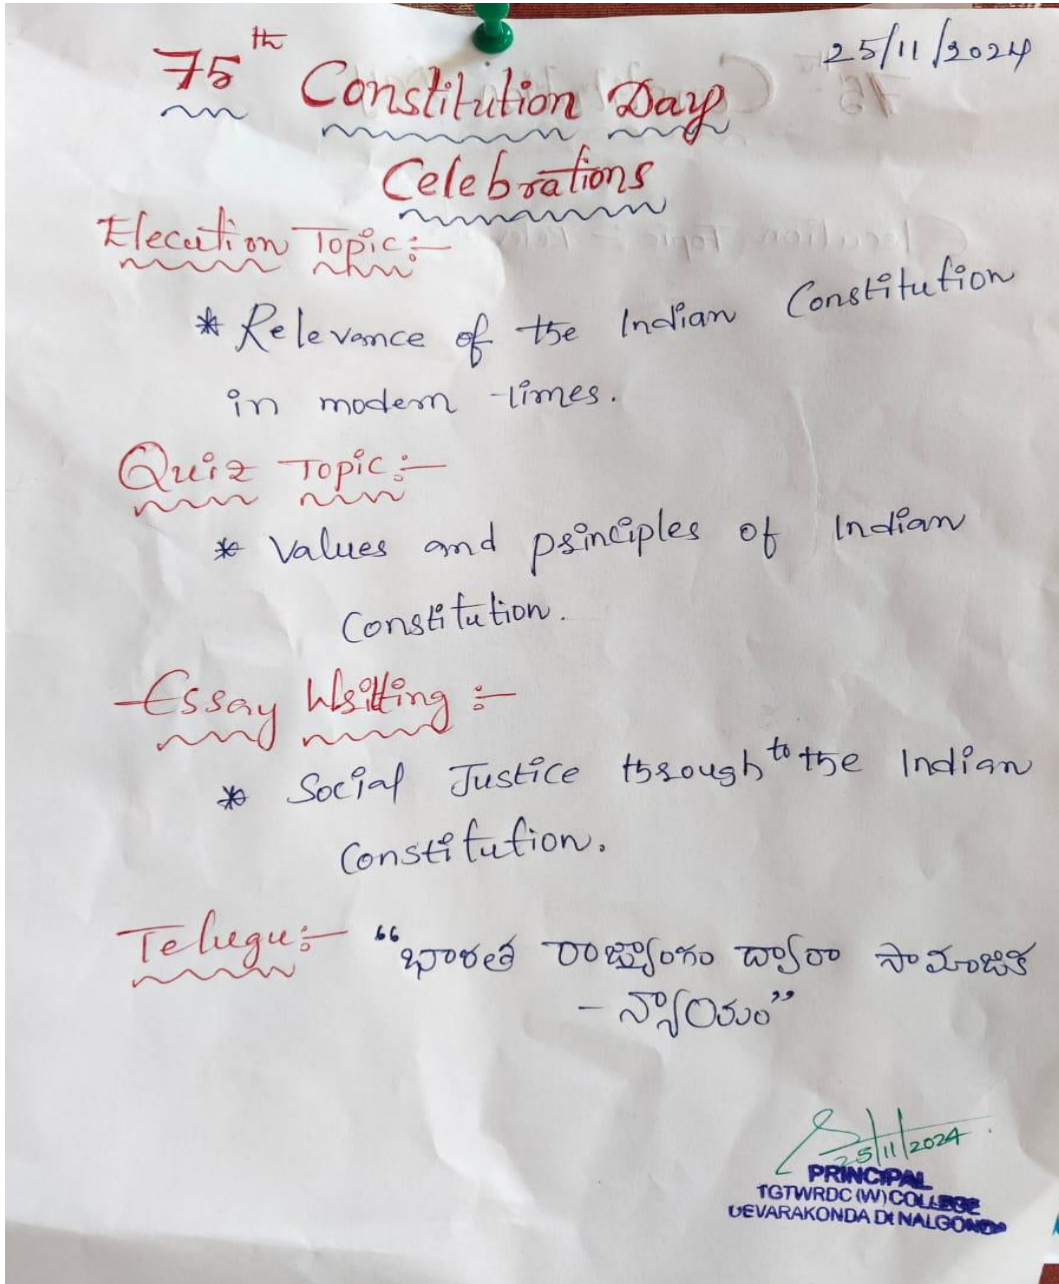 25/11/2024
75th Constitution Day
Celebrations
Elecution Topic :-
* Relevance of the Indian Constitution
in modern times.
Quiz Topic :-
* Values and principles of Indian
Constitution.
Essay Writting :-
* Social Justice through to the Indian
Constitution.
Telugu :- “భారత రాజ్యాంగం ద్వారా సామాజిక
- న్యాయం”
25/11/2024
PRINCIPAL
TGTWRDC (W) COLLEGE
DEVARAKONDA Dt NALGONDA